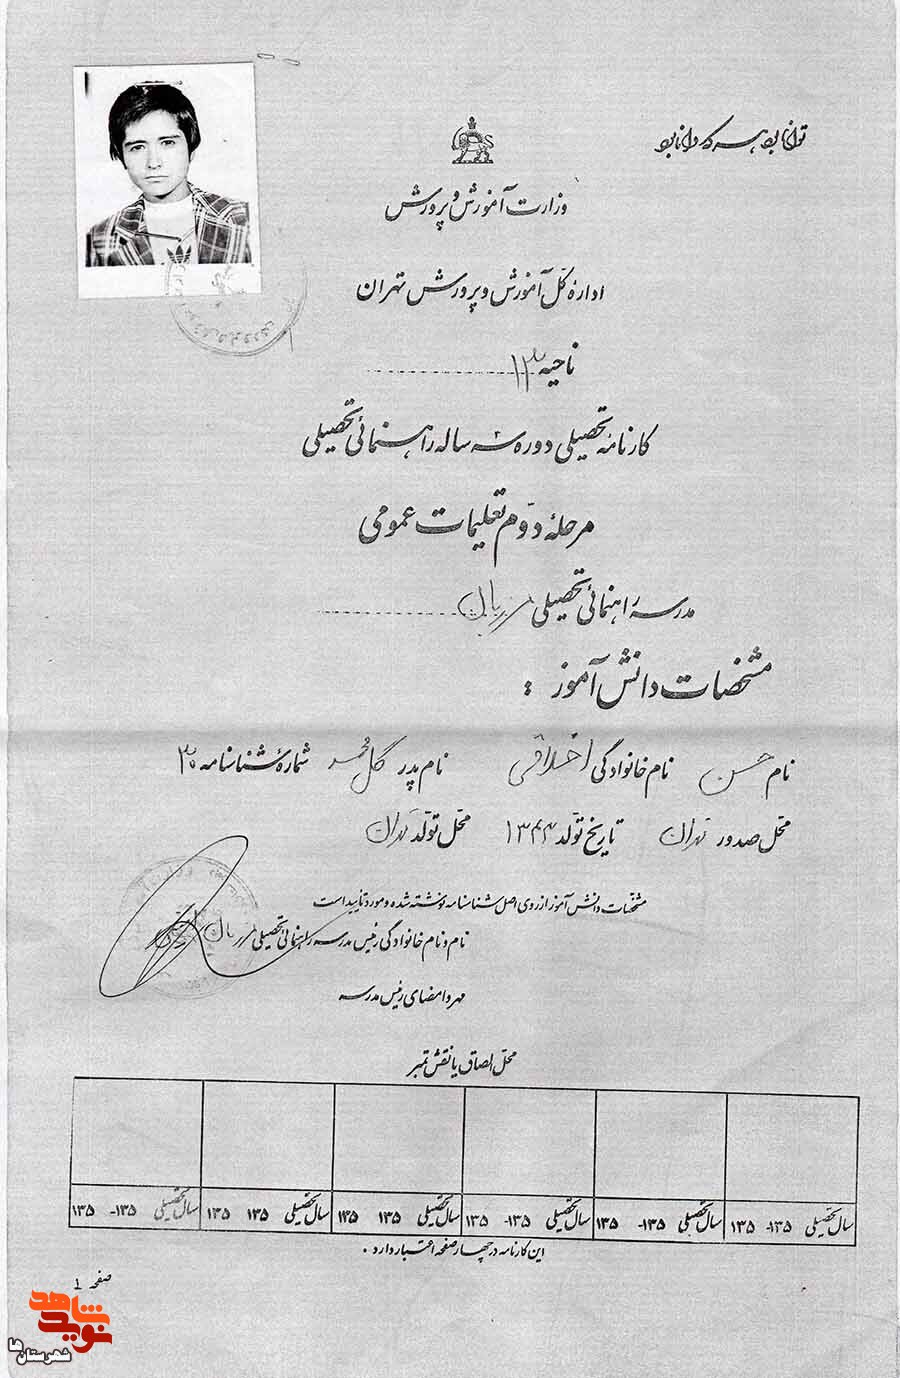 توانا بود هر که دانا بود
وزارت آموزش و پرورش
ادارهٔ کل آموزش و پرورش تهران
ناحیه ۱۳
کارنامه تحصیلی دوره سه ساله راهنمائی تحصیلی
مرحلهٔ دوّم تعلیمات عمومی
مدرسه راهنمائی تحصیلی
مشخصات دانش آموز :
نام حسن نام خانوادگی اخلاقی نام پدر گل محمد شمارهٔ شناسنامه ۳۰
محّل صدور تهران تاریخ تولّد ۱۳۴۴ محّل تولّد تهران
مشخّصات دانش آموز از روی اصل شناسنامه نوشته شده و مورد تأیید است
نام و نام خانوادگی رئیس مدرسه راهنمائی تحصیلی
مهر و امضای رئیس مدرسه
محّل الصاق یا نقش تمبر
سال تحصیلی ۱۳۵۰- ۱۳۵ سال تحصیلی ۱۳۵۰- ۱۳۵ سال تحصیلی ۱۳۵۰- ۱۳۵ سال تحصیلی ۱۳۵ ۱۳۵ سال تحصیلی ۱۳۵ ۱۳۵ سال تحصیلی ۱۳۵۰- ۱۳۵
این کارنامه در چهار صفحه اعتبار دارد .
صفحه ۱
نوید شاهد
شهرستان ها